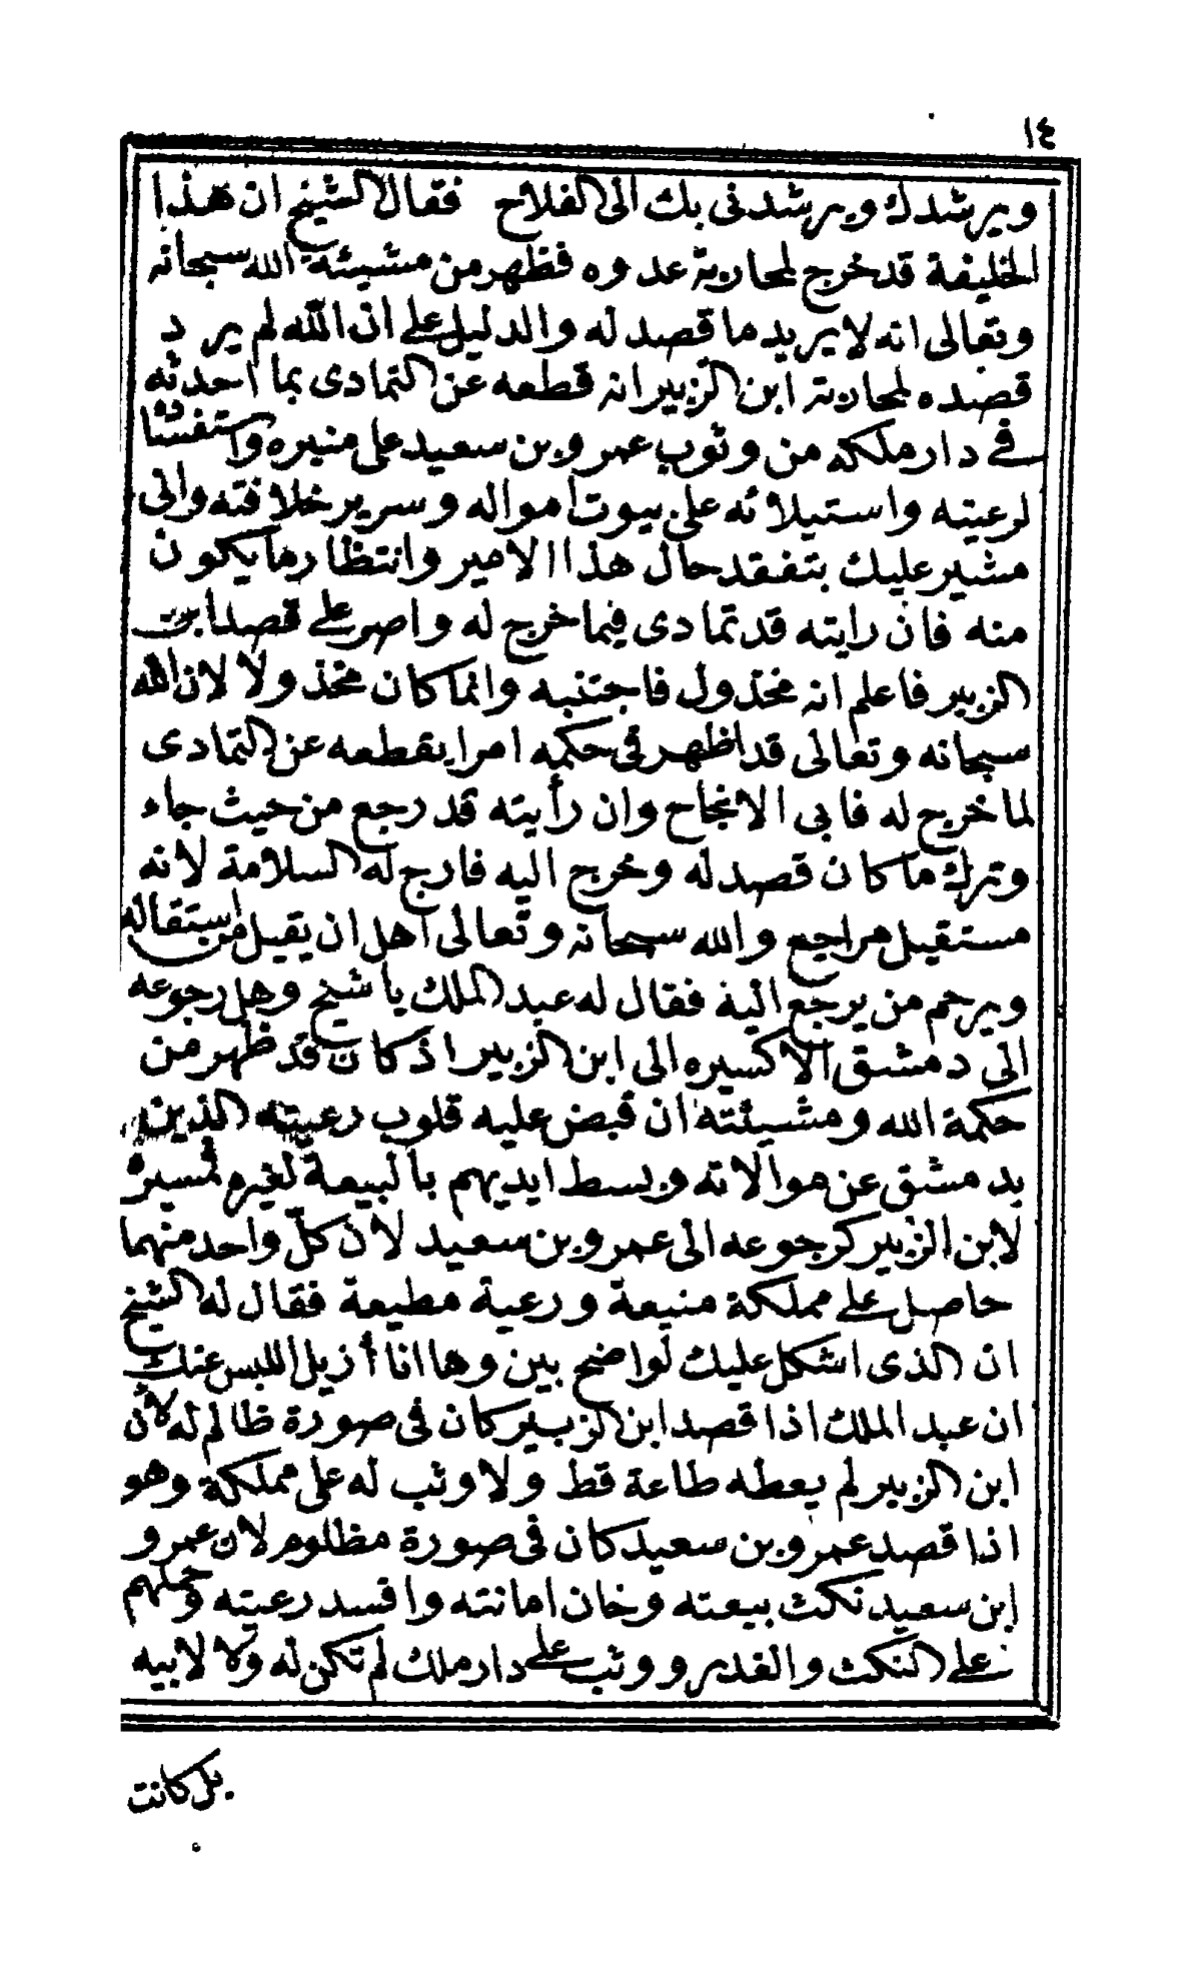 ١٤
ويرشدك ويرشدنى بك الى الفلاح فقال الشيخ ان هذا
الخليفة قد خرج لمحاربة عدوه فظهر من مشيئة الله سبحانه
وتعالى انه لا يريد ما قصد له والدليل على ان الله لم يرد
قصده لمحاربة ابن الزبير انه قطعه عن التمادى بما احدثه
فى دار ملكه من وثوب عمرو بن سعيد على منبره واستفشا
لرعيته واستيلائه على بيوت امواله وسرير خلافته وانى
مشير عليك بتفقد حال هذا الامير وانتظار ما يكون
منه فان رايته قد تمادى فيما خرج له واصر على قصد ابن
الزبير فاعلم انه مخذول فاجتنبه وانما كان مخذولا لان الله
سبحانه وتعالى قد اظهر فى حكمه امرا يقطعه عن التمادى
لما خرج له فابى الا نجاح وان رأيته قد رجع من حيث جاء
وترك ما كان قصد له وخرج اليه فارج له السلامة لانه
مستقيل مراجع والله سبحانه وتعالى اهل ان يقيل من استقاله
ويرحم من يرجع اليه فقال له عبد الملك يا شيخ وهل رجوعه
الى دمشق الا كسيره الى ابن الزبير اذ كان قد ظهر من
حكمة الله ومشيئته ان قبض عليه قلوب رعيته الذين
بدمشق عن موالاته وبسط ايديهم بالبيعة لغيره لمسيره
لابن الزبير كرجوعه الى عمرو بن سعيد لان كل واحد منهما
حاصل على مملكة منيعة ورعية مطيعة فقال له الشيخ
ان الذى اشكل عليك لواضح بين وها انا أزيل اللبس عنك
ان عبد الملك اذا قصد ابن الزبير كان فى صورة ظالم له لأن
ابن الزبير لم يعطه طاعة قط ولا وثب له على مملكة وهو
اذا قصد عمرو بن سعيد كان فى صورة مظلوم لان عمرو
ابن سعيد نكث بيعته وخان امانته وافسد رعيته وحملهم
على النكث والغدر ووثب على دار ملك لم تكن له ولا لابيه
بل كانت